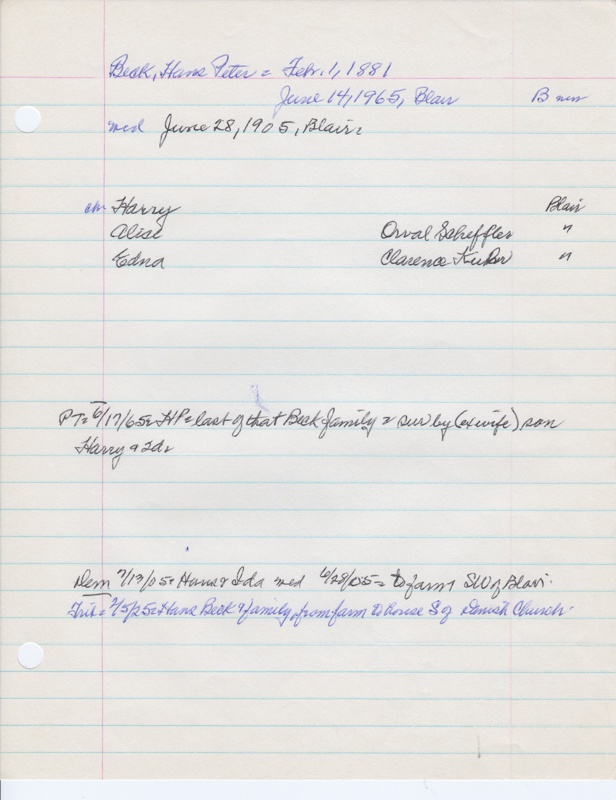 Beck, Hans Peter = Feb. 1, 1881
June 14, 1965, Blair B
med June 28, 1905, Blair =
ch Harry Blair
Alice Orval Scheffler "
Edna Clarence "
PT = 6/17/65 = HP = last of that Beck family = sur by (ex wife) son
Harry & 2d =
Dem 7/13/05 = Hans & Ida med 6/28/05 = to farm SW of Blair.
Trib = 2/5/25 = Hans Beck & family from farm to house S of Danish Church.